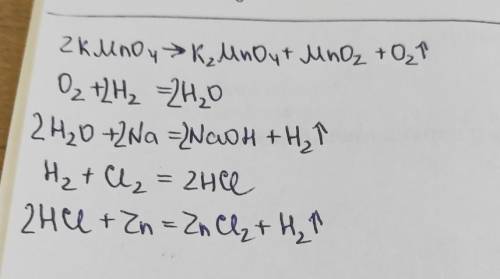 2KMnO₄ → K₂MnO₄ + MnO₂ + O₂↑
O₂ + 2H₂ = 2H₂O
2H₂O + 2Na = 2NaOH + H₂↑
H₂ + Cl₂ = 2HCl
2HCl + Zn = ZnCl₂ + H₂↑